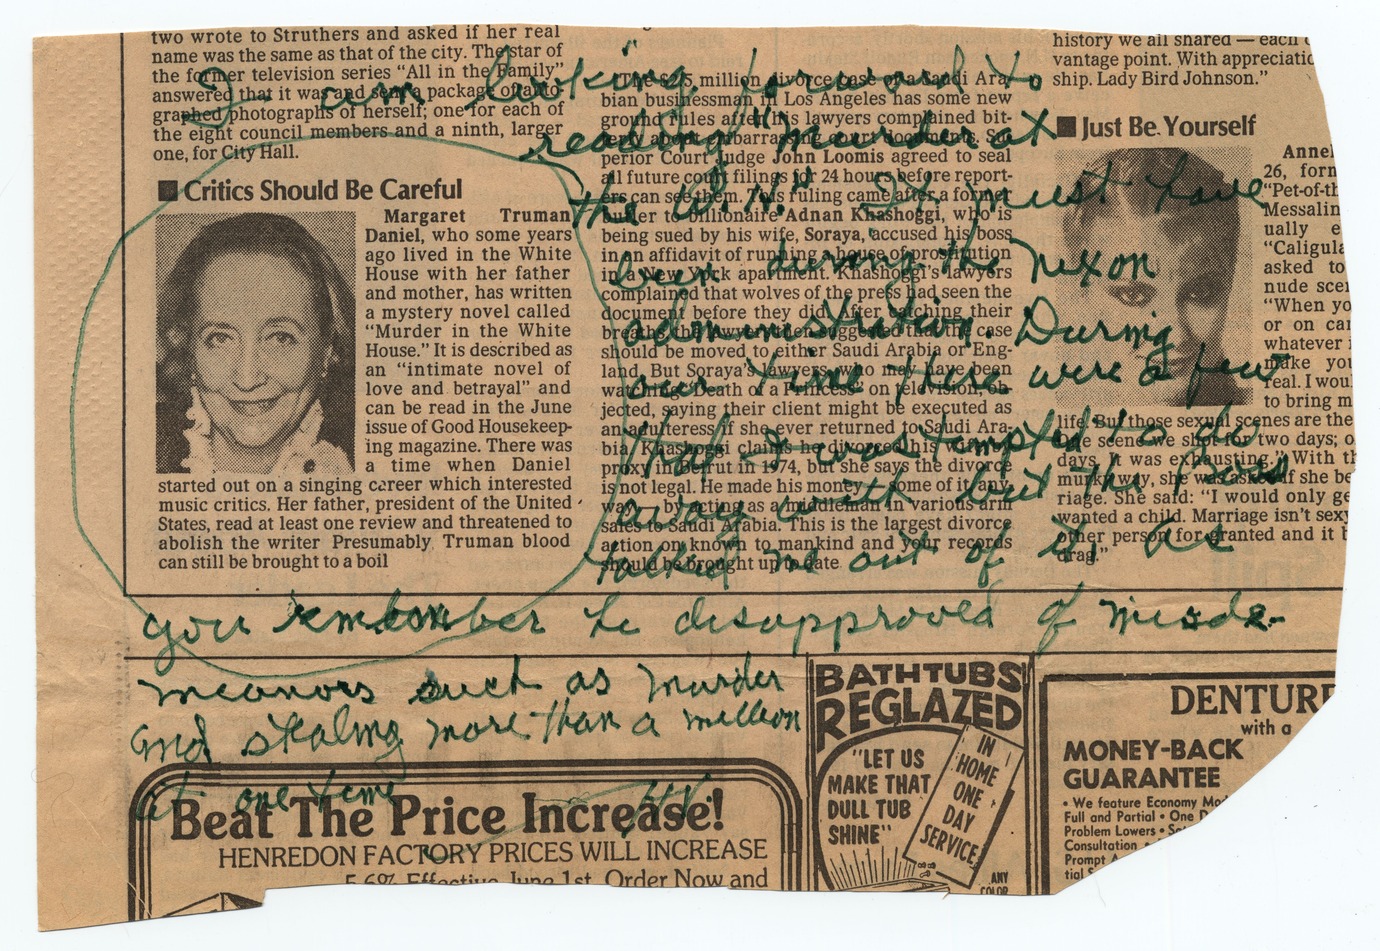 two wrote to Struthers and asked if her real
name was the same as that of the city. The star of
the former television series “All in the Family”
answered that it was and sent a package of auto-
graphed photographs of herself; one for each of
the eight council members and a ninth, larger
one, for City Hall.
■ Critics Should Be Careful
Margaret Truman
Daniel, who some years
ago lived in the White
House with her father
and mother, has written
a mystery novel called
“Murder in the White
House.” It is described as
an “intimate novel of
love and betrayal” and
can be read in the June
issue of Good Housekeep-
ing magazine. There was
a time when Daniel
started out on a singing career which interested
music critics. Her father, president of the United
States, read at least one review and threatened to
abolish the writer Presumably Truman blood
can still be brought to a boil
The $2.5 million divorce case of a Saudi Ara-
bian businessman in Los Angeles has some new
ground rules after his lawyers complained bit-
terly about embarrassing court documents. Su-
perior Court Judge John Loomis agreed to seal
all future court filings for 24 hours before report-
ers can see them. This ruling came after a former
butler to billionaire Adnan Khashoggi, who is
being sued by his wife, Soraya, accused his boss
in an affidavit of running a house of prostitution
in a New York apartment. Khashoggi’s lawyers
complained that wolves of the press had seen the
document before they did. After catching their
breaths, the lawyers then suggested that the case
should be moved to either Saudi Arabia or Eng-
land. But Soraya’s lawyers, who may have been
watching “Death of a Princess” on television, ob-
jected, saying their client might be executed as
an adulteress if she ever returned to Saudi Ara-
bia. Khashoggi claims he divorced his wife by
proxy in Beirut in 1974, but she says the divorce
is not legal. He made his money — some of it, any-
way — by acting as a middleman in various arm
sales to Saudi Arabia. This is the largest divorce
action on known to mankind and your records
should be brought up to date
history we all shared — each
vantage point. With appreciatio
ship. Lady Bird Johnson.”
■ Just Be Yourself
Annel
26, form
“Pet-of-th
Messalin
ually e
“Caligula
asked to
nude scen
“When yo
or on can
whatever i
make you
real. I woul
to bring m
life. But those sexual scenes are the
scenes we shot for two days;
days. It was exhausting.” With th
way, she was asked if she be
riage. She said: “I would only ge
wanted a child. Marriage isn’t sexy
other person for granted and it b
drag.”
I am looking forward to
reading "Murder at
the W.H." It must have
been during the Nixon
administration. During
our time there were a few
that I was tempted to do
away with but the boss
talked me out of it. As
you remember he disapproved of misde-
meanors such as murder
and stealing more than a million
at one time
BATHTUBS
REGLAZED
"LET US
MAKE THAT
DULL TUB
SHINE"
IN
HOME
ONE
DAY
SERVICE
ANY
COLOR
DENTURE
with a
MONEY-BACK
GUARANTEE
• We feature Economy
Full and Partial • One D
Problem Lowers •
Consultation •
Prompt
tial
Beat The Price Increase!
HENREDON FACTORY PRICES WILL INCREASE
5.6% Effective June 1st. Order Now and